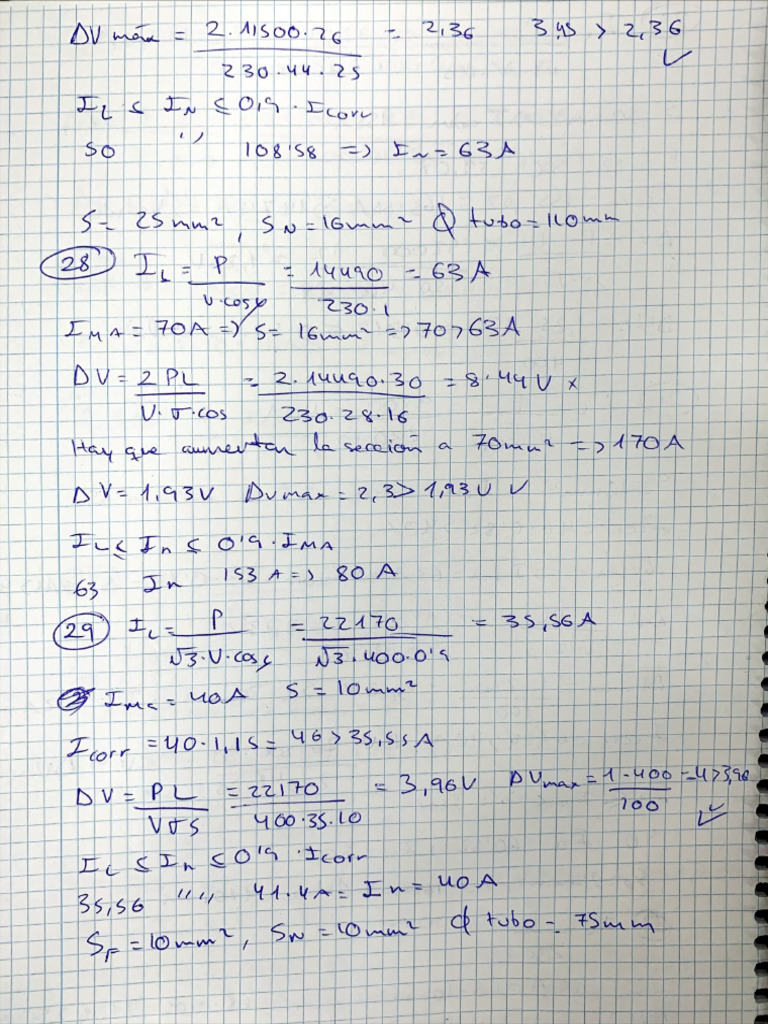 ΔV máx = 2·11500·26 / 230·44·25 = 2,36 3,45 > 2,36 ✓
I_L ≤ I_N ≤ 0,9 · I_corr
50 '' 108'58 => I_N = 63 A
S = 25 mm², S_N = 16 mm² ϕ tubo = 110 mm
28 I_L = P / V·cosφ = 14490 / 230·1 = 63 A
I_MA = 70A => S = 16 mm² => 70 > 63 A
DV = 2PL / V·σ·cos = 2·14490·30 / 230·28·16 = 8'44 V x
Hay que aumentar la sección a 70 mm² => 170 A
ΔV = 1,93V Dvmax = 2,3 > 1,93 V ✓
I_L ≤ I_n ≤ 0'9 · I_MA
63 In 153 A => 80 A
29 I_L = P / √3·V·cosφ = 22170 / √3·400·0'9 = 35,56 A
I_Mc = 40A S = 10 mm²
I_corr = 40·1,15 = 46 > 35,55 A
DV = PL / VσS = 22170 / 400·35·10 = 3,96V ΔVmax = 1·400 / 100 = 4 > 3,96 ✓
I_L ≤ I_n ≤ 0'9 · I_corr
35,56 '' '' 41.4A = In = 40 A
S_F = 10 mm², S_N = 10 mm² ϕ tubo = 75mm